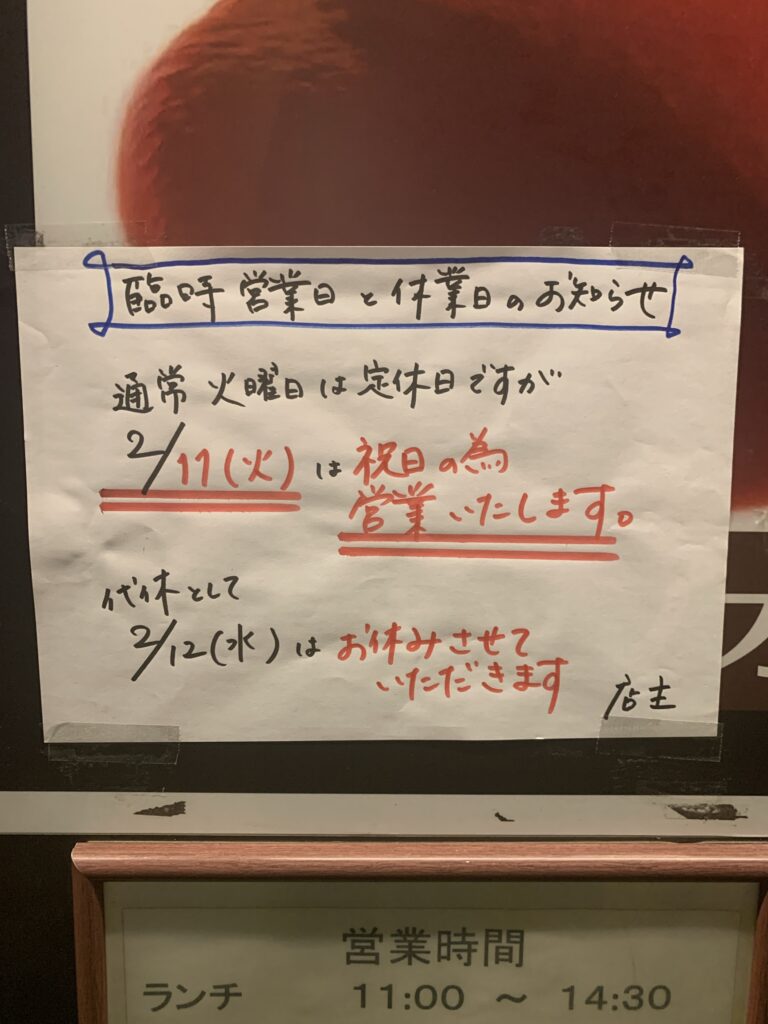 臨時営業日と休業日のお知らせ
通常火曜日は定休日ですが
2/11(火)は祝日の為
営業いたします。
代休として
2/12(水)はお休みさせて
いただきます
店主
営業時間
ランチ 11:00 ～ 14:30